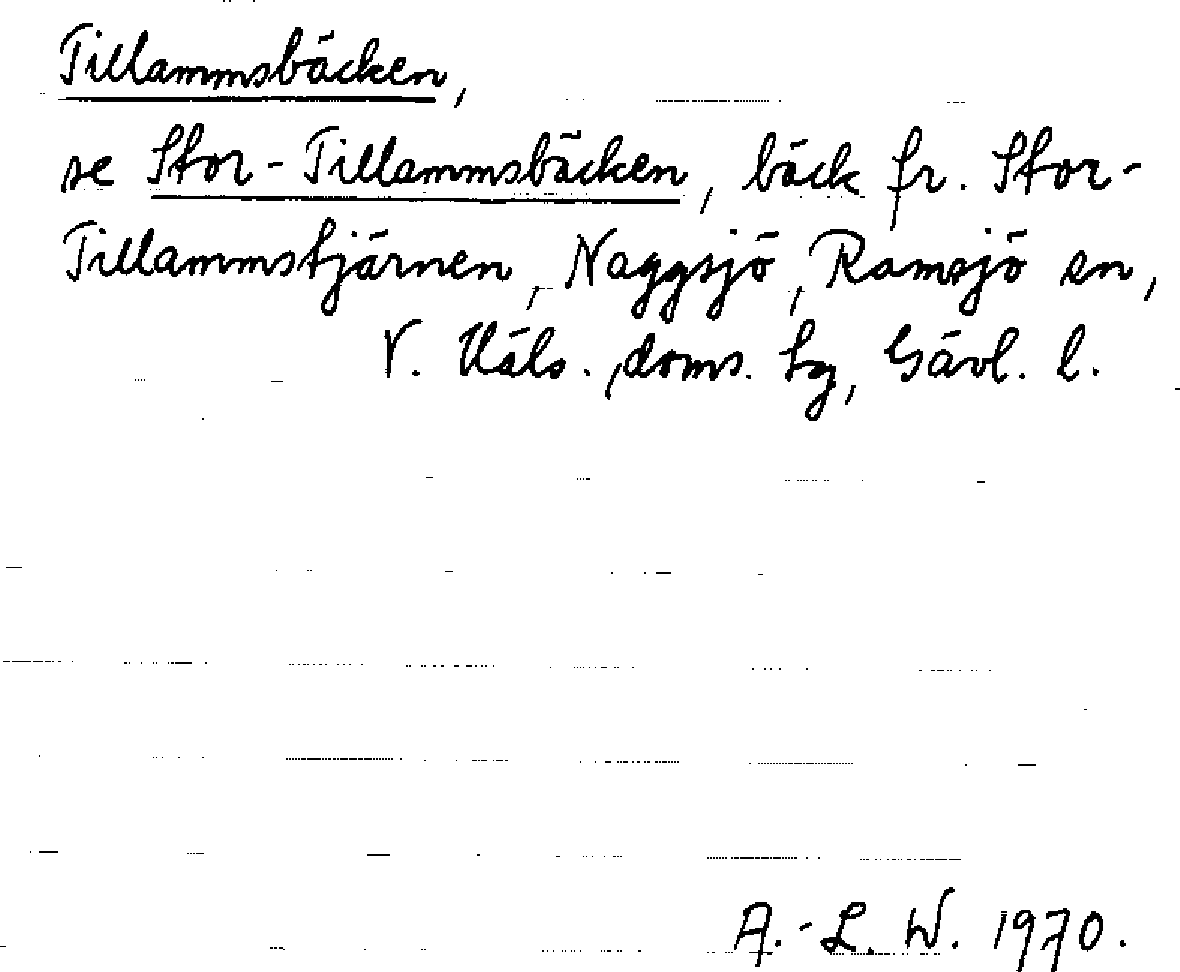 Tillammsbäcken,
se Stor-Tillammsbäcken, bäck fr. Stor-
Tillammstjärnen, Naggsjö, Ramsjö sn,
V. Häls. doms. tg, Gävl. l.
A.-L. W. 1970.